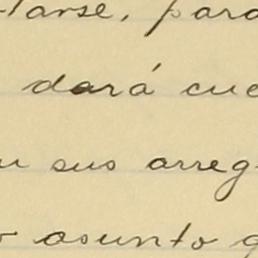 tarse, para
dará cue
u sus arreg
o asunto q